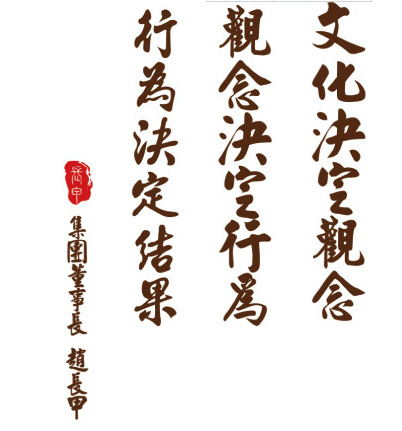 文化決定觀念
觀念決定行為
行為決定結果
集團董事長 趙長甲